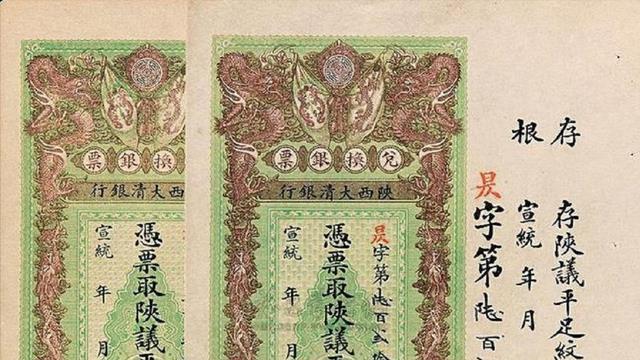 兌換銀票
陝西大清銀行
憑票取陝議平
宣統 年 月
兌換銀票
陝西大清銀行
昃字第陸百貳拾
憑票取陝議平
宣統 年 月
存根
存陝議平足紋
宣統 年 月
昃字第陸百